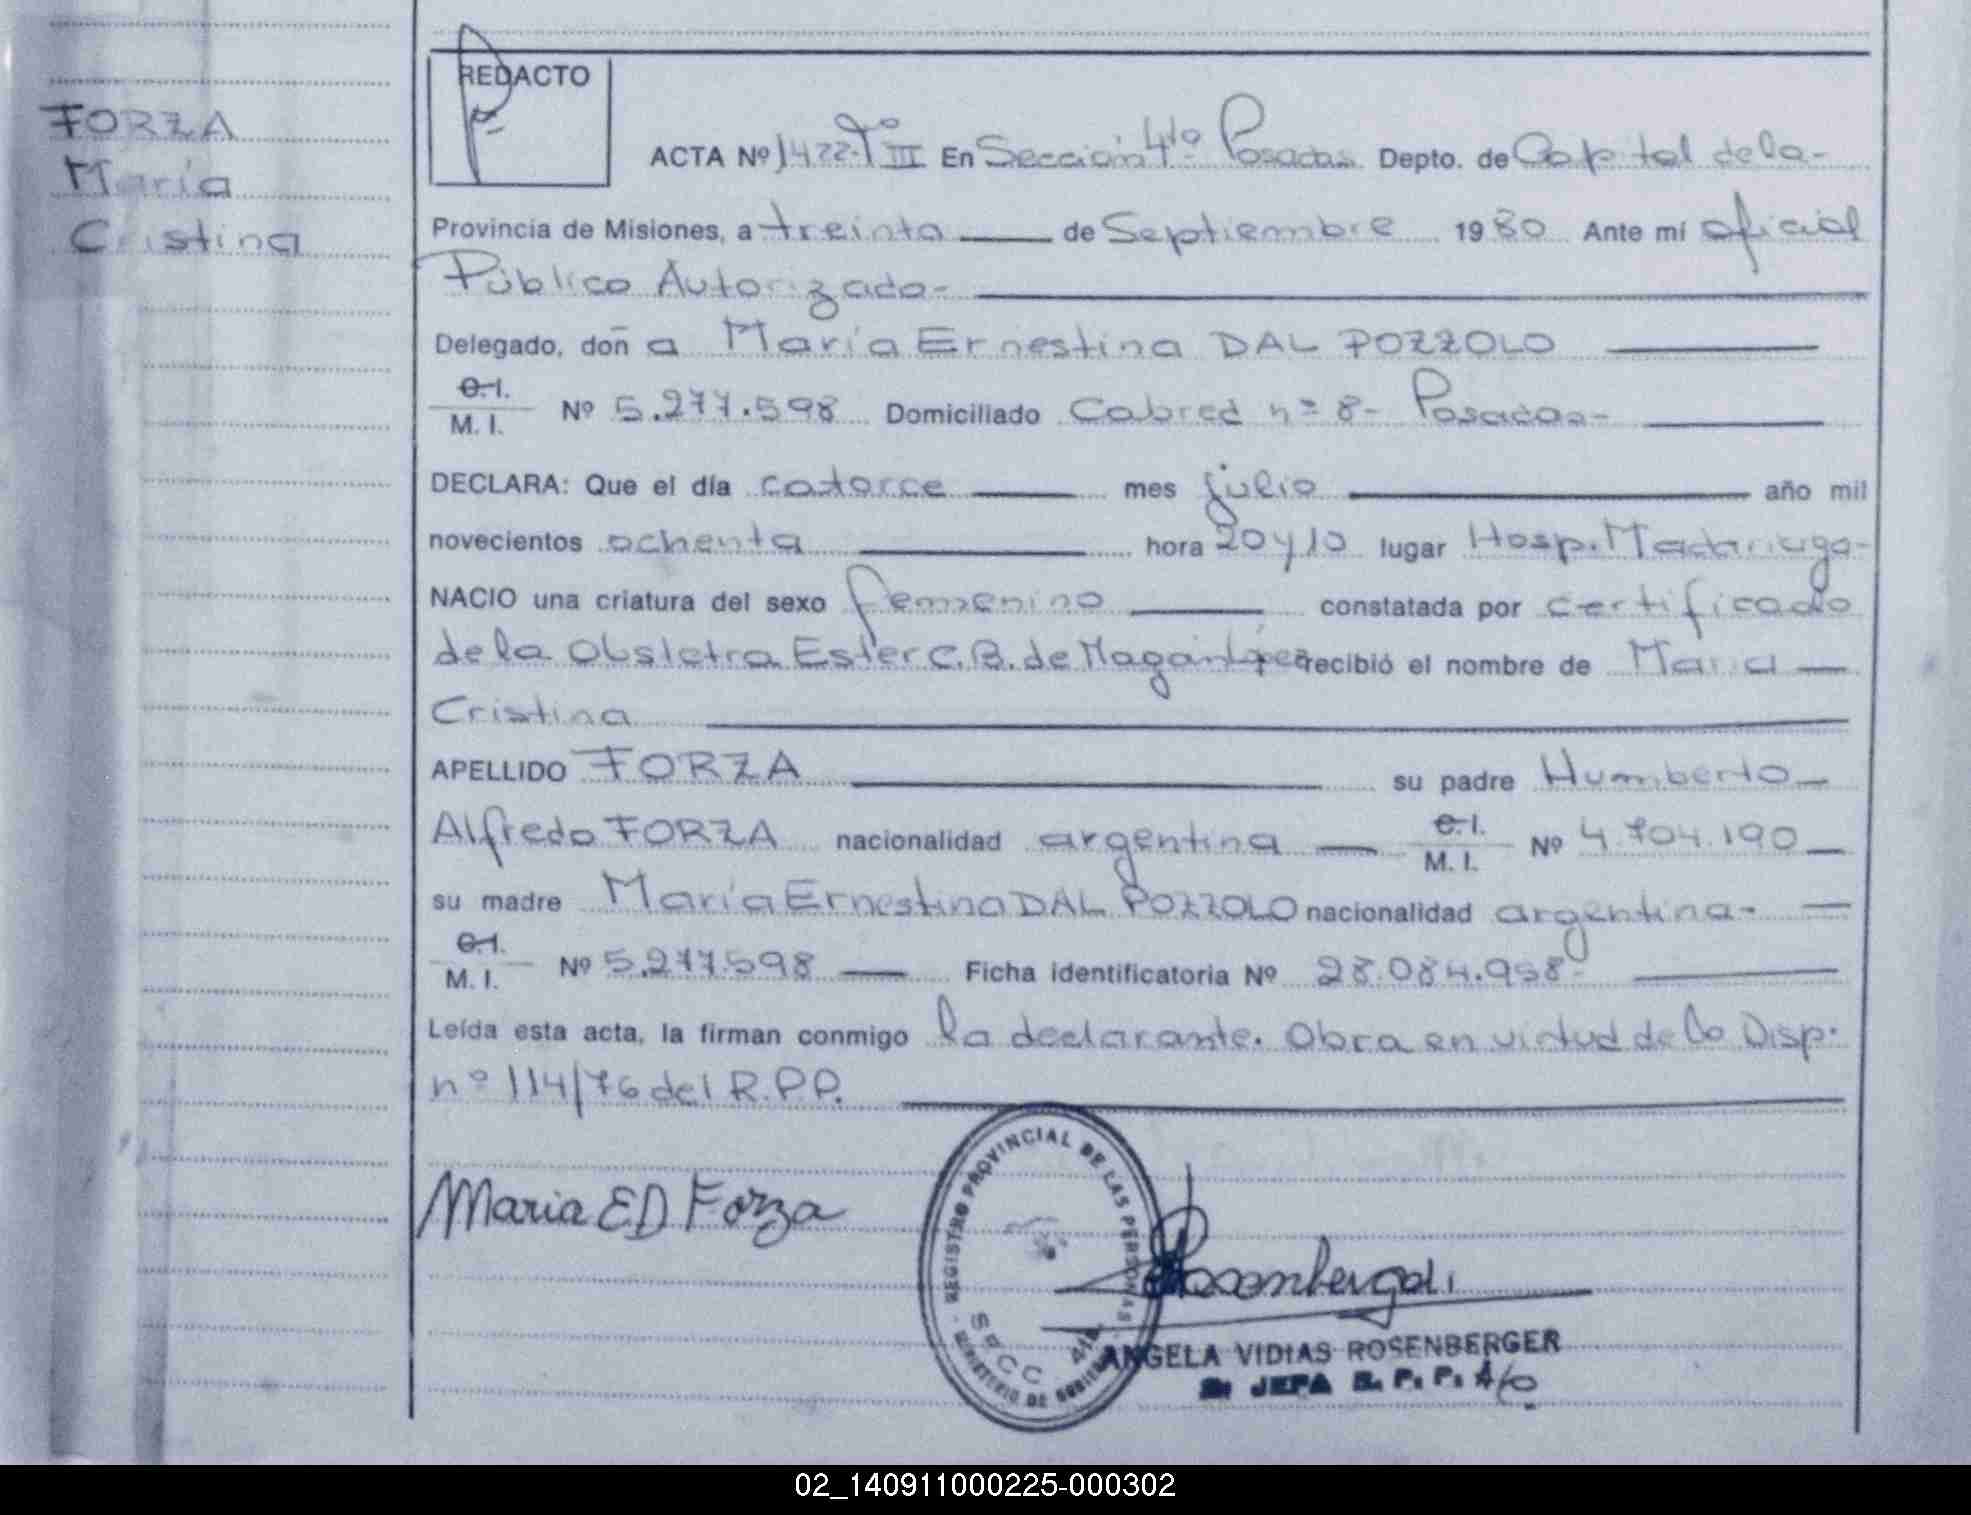 FORZA
María
Cristina
REDACTO
ACTA Nº 1422-Tº III En Sección 4ta Posadas Depto. de Capital de la-
Provincia de Misiones, a treinta de Septiembre 1980 Ante mí oficial
Público Autorizado-
Delegado, doña María Ernestina DAL POZZOLO
C.I.
M. I. Nº 5.277.598 Domiciliado Cabred nº 8- Posadas-
DECLARA: Que el día catorce mes julio año mil
novecientos ochenta hora 20 y 10 lugar Hosp. Madariaga-
NACIO una criatura del sexo femenino constatada por certificado
de la Obstetra Ester C. B. de recibió el nombre de María
Cristina
APELLIDO FORZA su padre Humberto
Alfredo FORZA nacionalidad argentina C.I. M. I. Nº 4.704.190
su madre María Ernestina DAL POZZOLO nacionalidad argentina-
C.I.
M. I. Nº 5.277.598 Ficha identificatoria Nº 28.084.958-
Leída esta acta, la firman conmigo la declarante. Obra en virtud de la Disp.
nº 114/76 del R.P.P.
Maria E D Forza
REGISTRO PROVINCIAL DE LAS PERSONAS
MINISTERIO DE GOBIERNO
SECC 4ta.
ANGELA VIDIAS ROSENBERGER
JEFA R. P. P. A/C
02_140911000225-000302